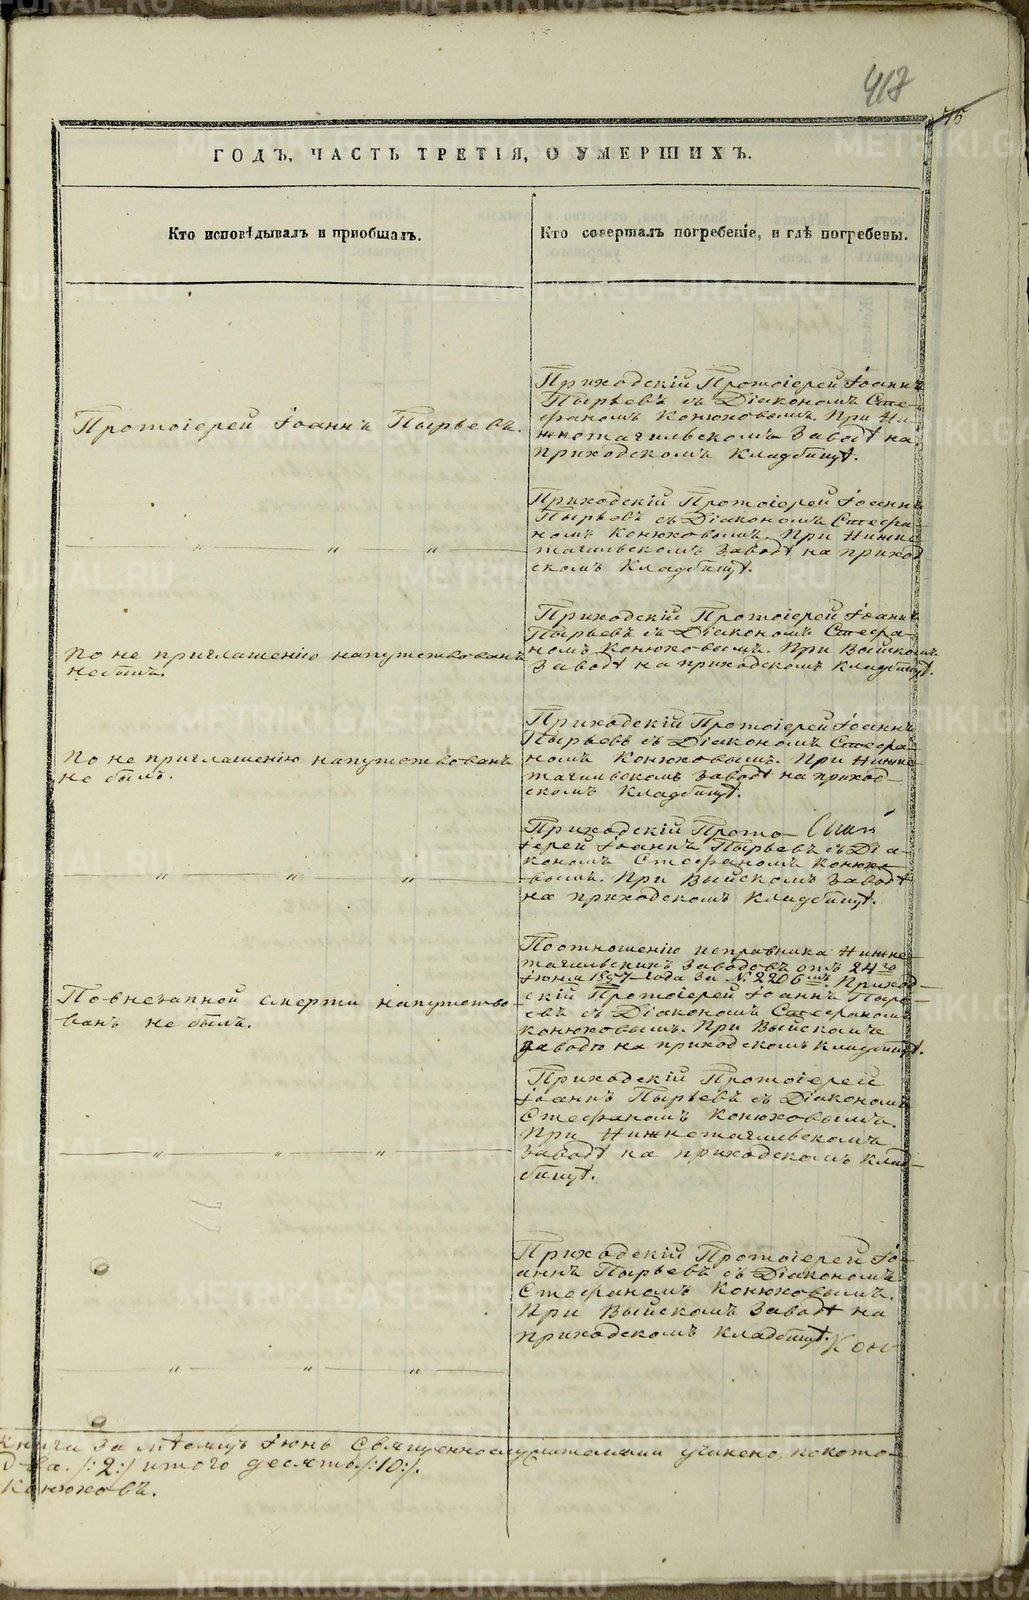 417
75
ГОДЪ, ЧАСТЬ ТРЕТІЯ, О УМЕРШИХЪ.
Кто исповѣдывалъ и пріобщалъ.
Кто совершалъ погребеніе, и гдѣ погребены.
Протоіерей Іоаннъ Пырьевъ.
Приходскій Протоіерей Іоаннъ
Пырьевъ съ Діакономъ Сте-
фаномъ Конюховымъ. При Ни-
жнетагильскомъ Заводѣ на
приходскомъ Кладбищѣ.
— „ „ „ —
Приходскій Протоіерей Іоаннъ
Пырьевъ съ Діакономъ Стефа-
номъ Конюховымъ. При Нижне-
тагильскомъ Заводѣ на приход
скомъ Кладбищѣ.
По не приглашенію напутствованъ
не былъ.
Приходскій Протоіерей Іоаннъ
Пырьевъ съ Діакономъ Стефа-
номъ Конюховымъ. При Выйскомъ
Заводѣ на приходскомъ Кладбищѣ.
По не приглашенію напутствованъ
не былъ.
Приходскій Протоіерей Іоаннъ
Пырьевъ съ Діакономъ Стефа-
номъ Конюховымъ. При Нижне-
тагильскомъ Заводѣ на приход-
скомъ Кладбищѣ.
— „ „ „ —
Приходскій Прото-
іерей Іоаннъ Пырьевъ съ Діа-
кономъ Стефаномъ Конюхо-
вымъ. При Выйскомъ Заводѣ
на приходскомъ Кладбищѣ.
По внезапной смерти напутство-
ванъ не былъ.
По отношенію исправника Нижне-
тагильскихъ Заводовъ отъ 24го
Іюня 1847 года за № 2206мъ. Приход-
скій Протоіерей Іоаннъ Пырь-
евъ съ Діакономъ Стефаномъ
Конюховымъ. При Выйскомъ
заводѣ на приходскомъ Кладбищѣ.
— „ „ „ —
Приходскій Протоіерей
Іоаннъ Пырьевъ съ Діакономъ
Стефаномъ Конюховымъ.
При Нижнетагильскомъ
Заводѣ на приходскомъ Клад-
бищѣ.
— „ „ „ —
Приходскій Протоіерей Іо-
аннъ Пырьевъ съ Діакономъ
Стефаномъ Конюховымъ.
При Выйскомъ Заводѣ на
приходскомъ Кладбищѣ.
Кон-
книги за мѣсяцъ Іюнь Священнослужителями учинено, по кото-
два /:2:/ итого десять /:10:/.
Конюховъ.
METRIKI.GASO-URAL.RU